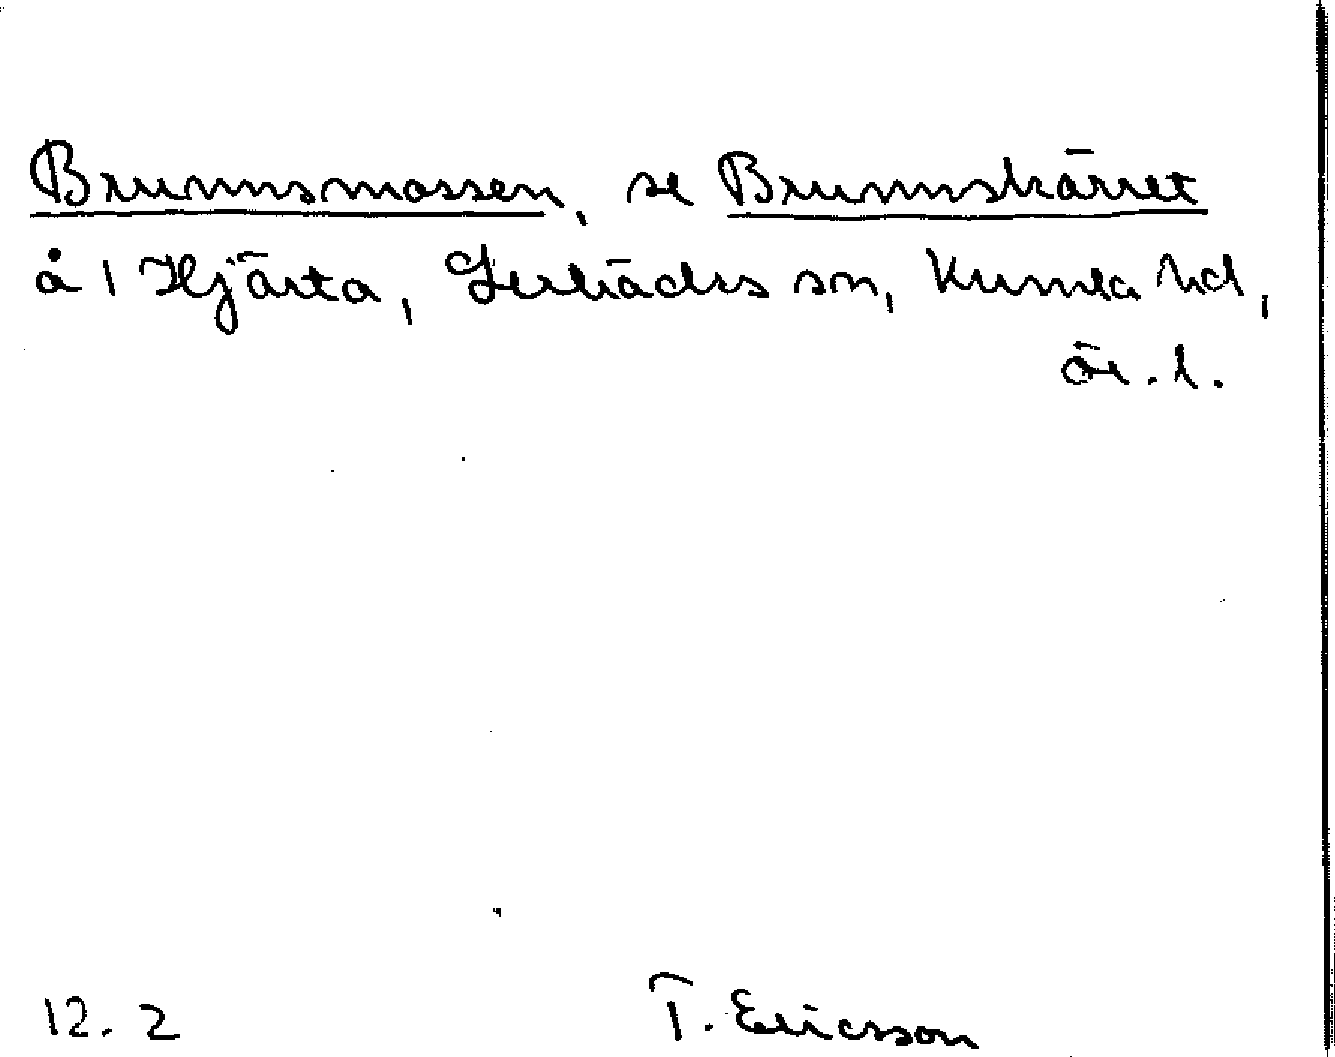 Brunnsmossen, se Brunnskärret
å 1 Hjärta, Lerbäcks sn, Kumla hd,
ör. l.
12. 2 T. Ericsson